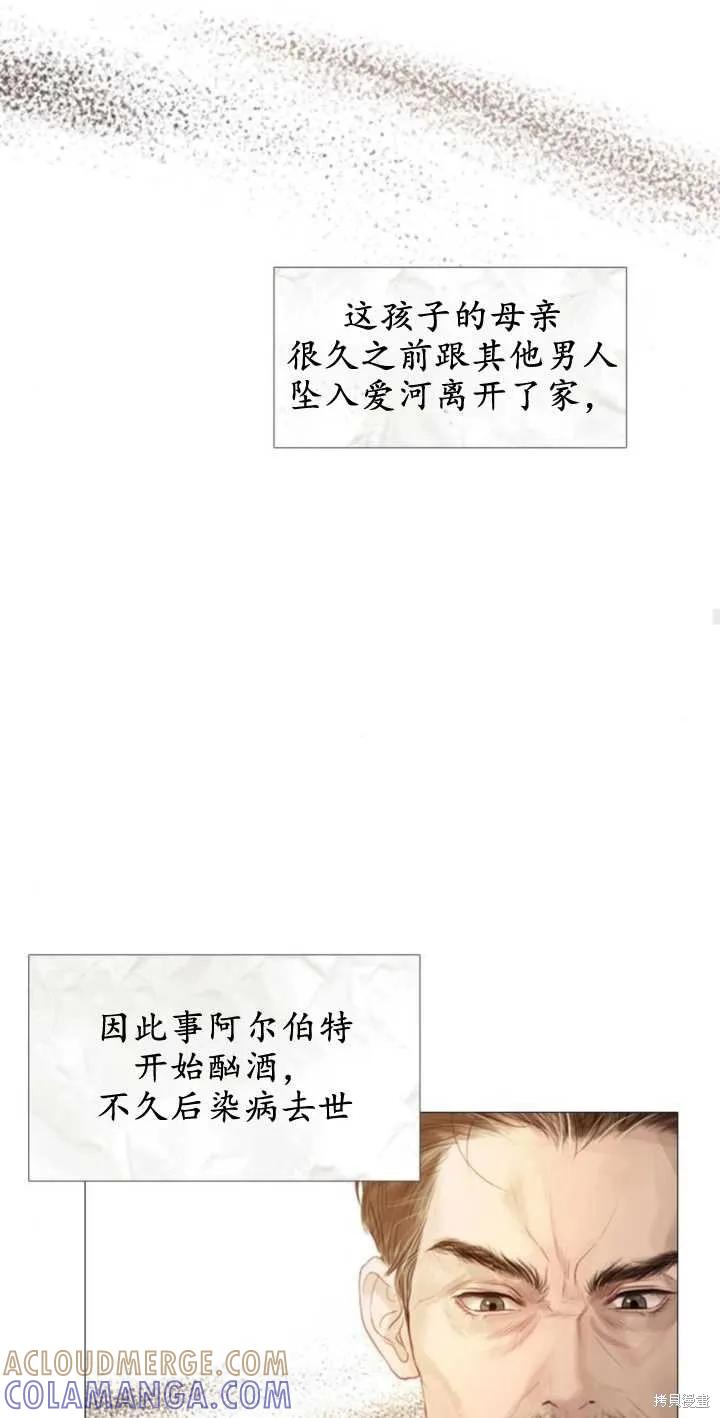 这孩子的母亲
很久之前跟其他男人
坠入爱河离开了家，
因此事阿尔伯特
开始酗酒，
不久后染病去世
ACLOUDMERGE.COM
COLAMANGA.COM
拷貝漫畫